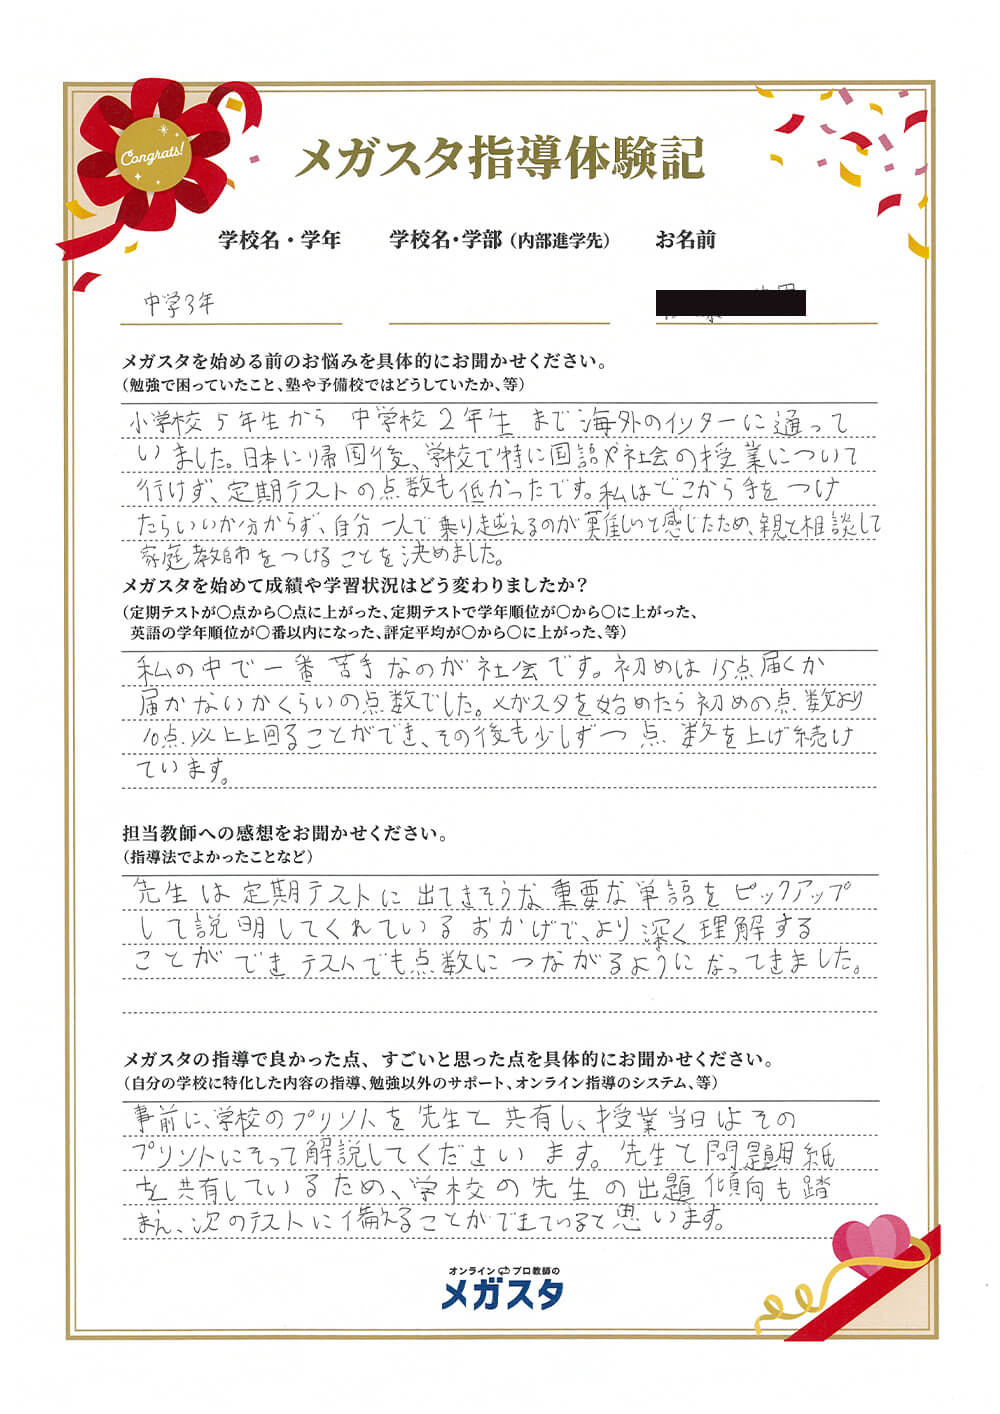 Congrats!
メガスタ指導体験記
学校名・学年 学校名・学部（内部進学先） お名前
中学3年
メガスタを始める前のお悩みを具体的にお聞かせください。
（勉強で困っていたこと、塾や予備校ではどうしていたか、等）
小学校5年生から 中学校2年生まで海外のインターに通って
いました。日本に帰国後、学校で特に国語や社会の授業について
行けず、定期テストの点数も低かったです。私はどこから手をつけ
たらいいか分からず、自分一人で乗り越えるのが難しいと感じたため、親と相談して
家庭教師をつけることを決めました。
メガスタを始めて成績や学習状況はどう変わりましたか？
（定期テストが〇点から〇点に上がった、定期テストで学年順位が〇から〇に上がった、
英語の学年順位が〇番以内になった、評定平均が〇から〇に上がった、等）
私の中で一番苦手なのが社会です。初めは15点届くか
届かないかくらいの点数でした。メガスタを始めたら初めの点数より
10点以上上回ることができ、その後も少しずつ点数を上げ続け
ています。
担当教師への感想をお聞かせください。
（指導法でよかったことなど）
先生は定期テストに出てきそうな重要な単語をピックアップ
して説明してくれているおかげで、より深く理解する
ことができテストでも点数につながるようになってきました。
メガスタの指導で良かった点、すごいと思った点を具体的にお聞かせください。
（自分の学校に特化した内容の指導、勉強以外のサポート、オンライン指導のシステム、等）
事前に、学校のプリントを先生と共有し、授業当日はその
プリントにそって解説してくださいます。先生と問題用紙
を共有しているため、学校の先生の出題傾向も踏
まえ、次のテストに備えることができていると思います。
オンライン プロ教師の
メガスタ